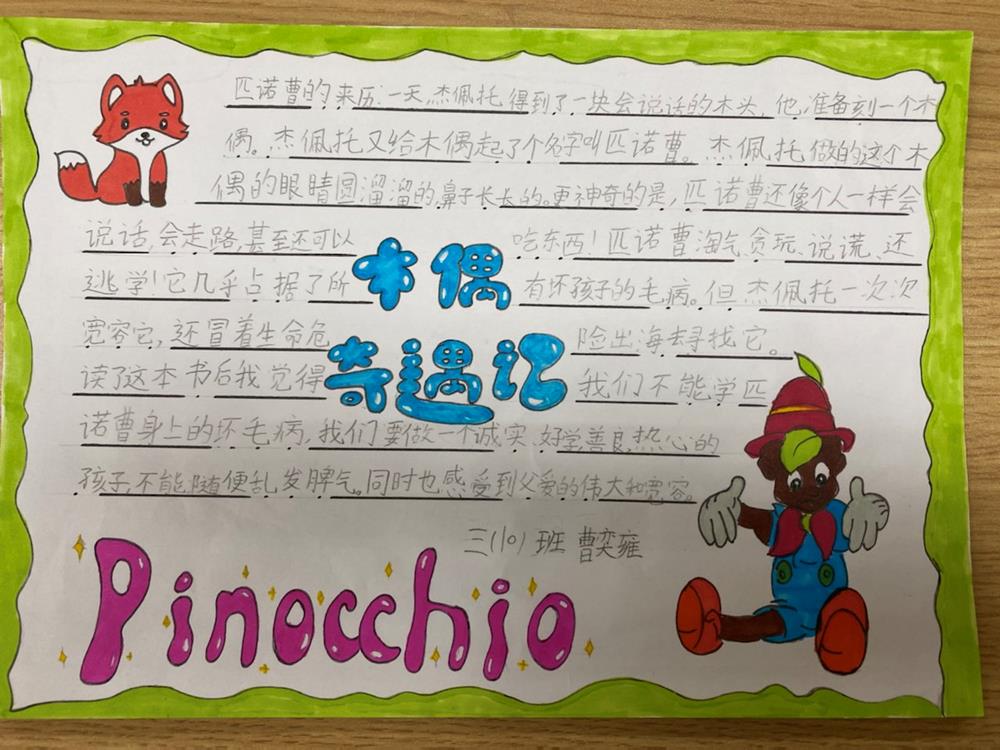 匹诺曹的来历:一天,杰佩托得到了一块会说话的木头,他,准备刻一个木
偶。杰佩托又给木偶起了个名字叫匹诺曹。杰佩托做的这个木
偶的眼睛圆溜溜的,鼻子长长的。更神奇的是,匹诺曹还像个人一样会
说话,会走路,甚至还可以吃东西!匹诺曹淘气、贪玩、说谎、还
逃学!它几乎占据了所有坏孩子的毛病。但杰佩托一次次
宽容它,还冒着生命危险出海去寻找它。
木偶
奇遇记
读了这本书后我觉得我们不能学匹
诺曹身上的坏毛病,我们要做一个诚实、好学、善良、热心的
孩子,不能随便乱发脾气。同时也感受到父爱的伟大和宽容。
三(10)班 曹奕雍
Pinocchio